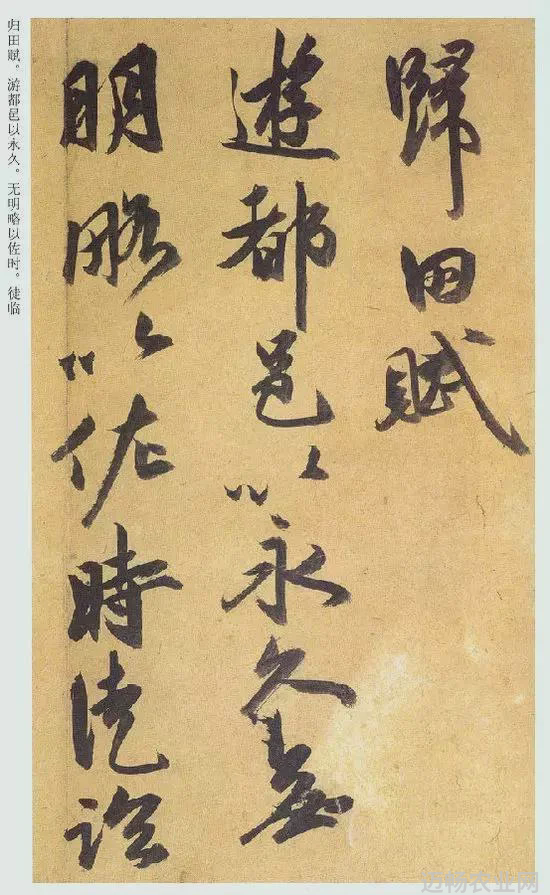 歸田賦
遊都邑以永久無
明略以佐時徒臨
归田赋。游都邑以永久。无明略以佐时。徒临
迈畅农业网